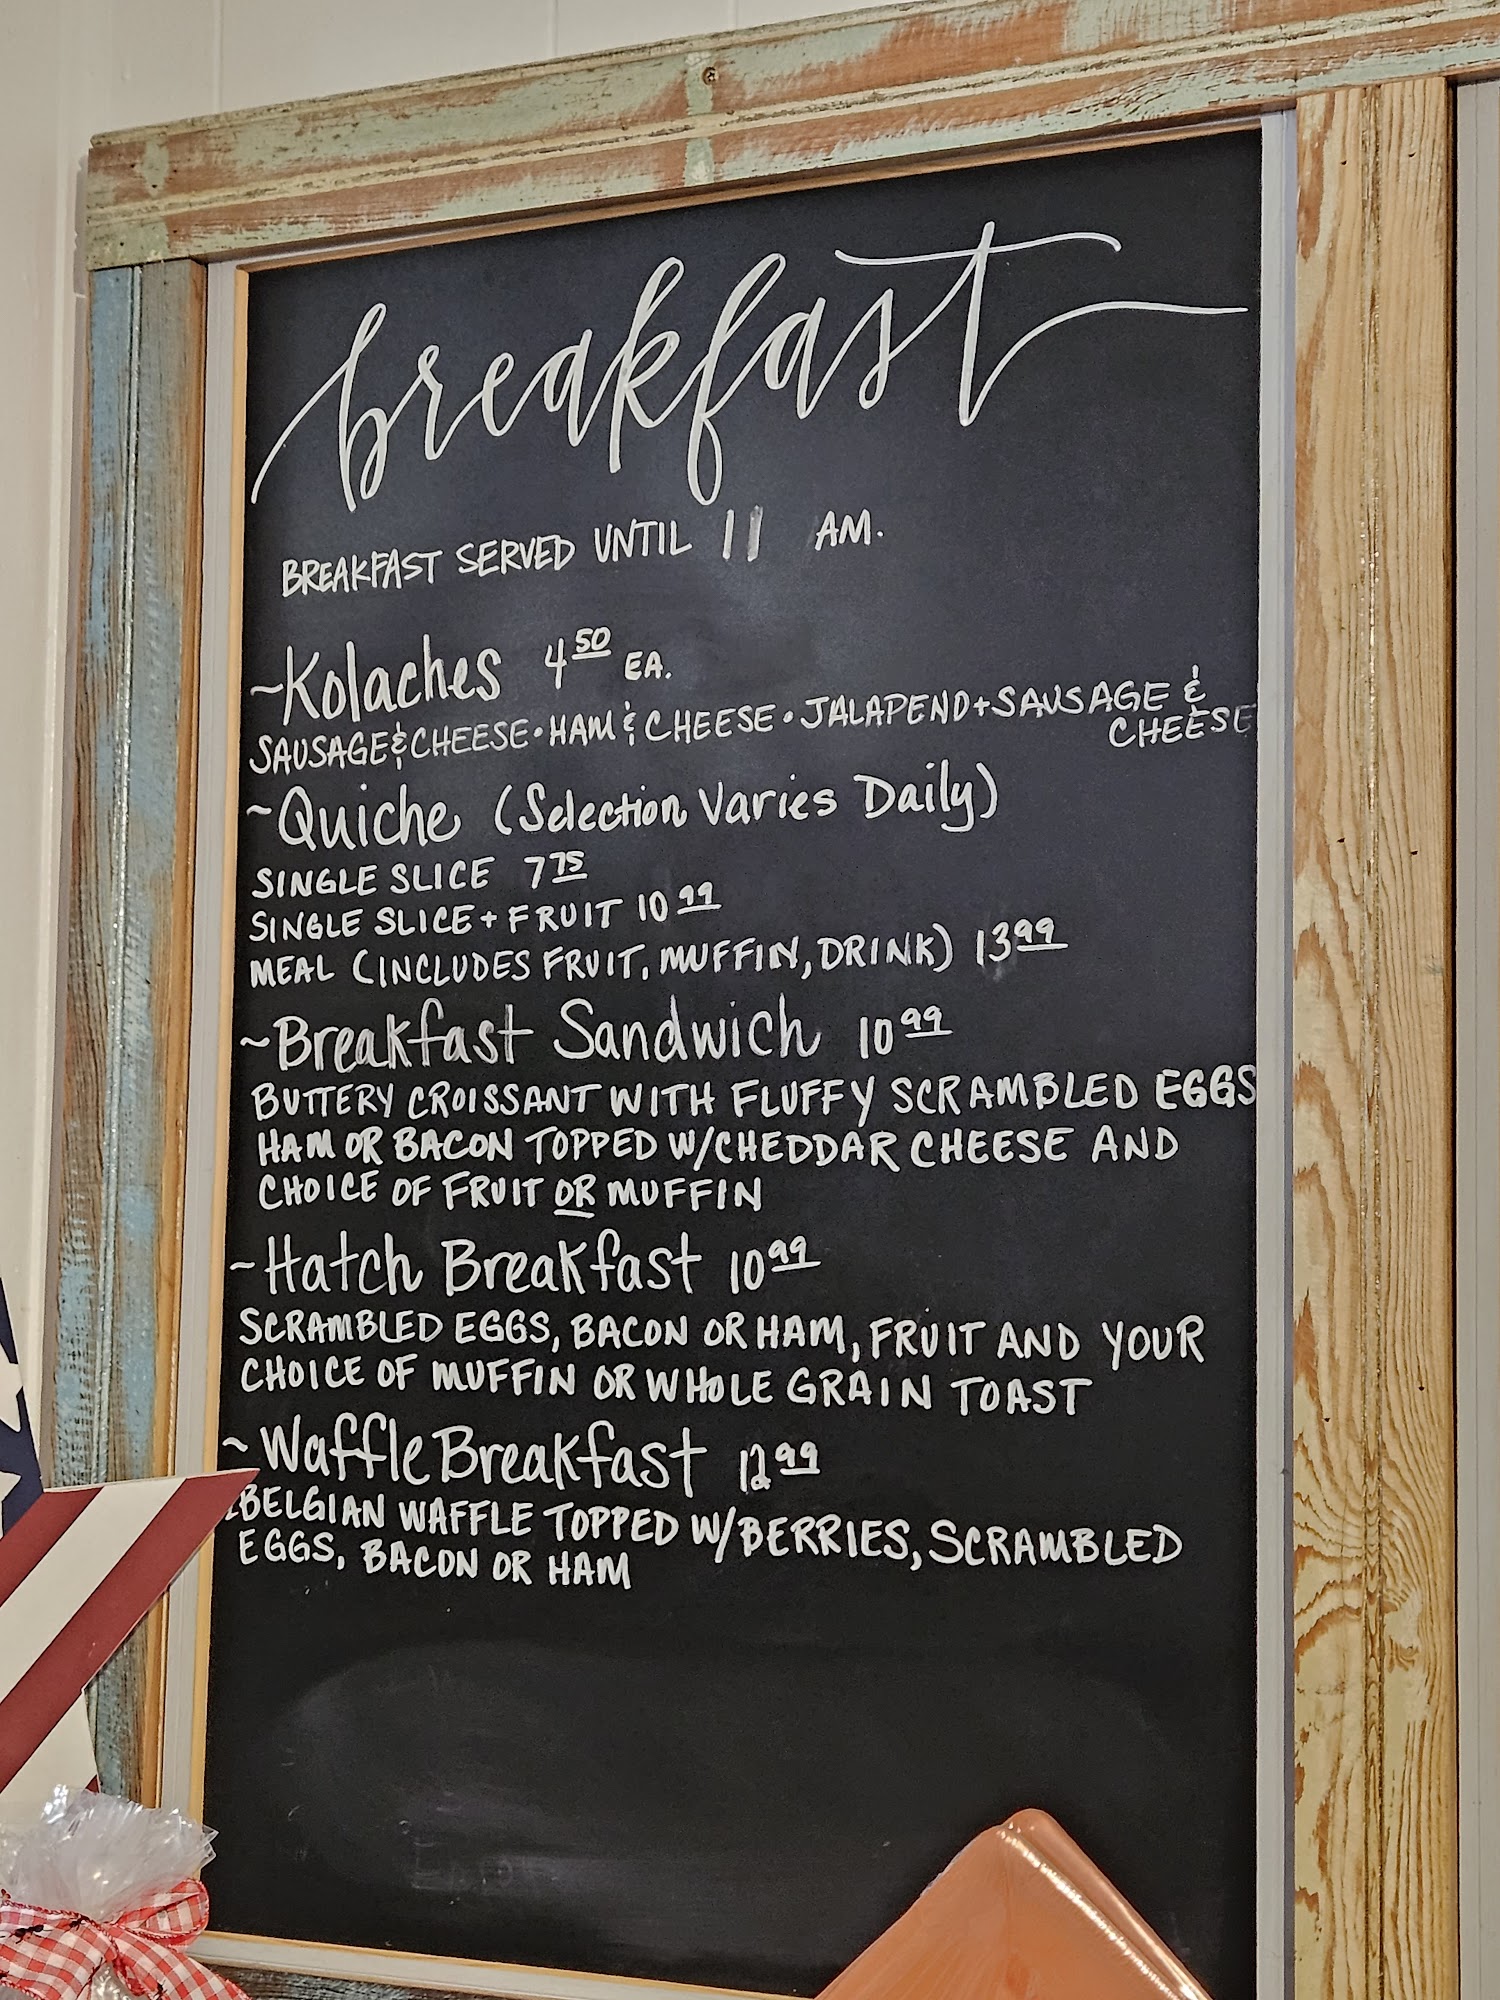 breakfast
BREAKFAST SERVED UNTIL 11 AM.
~Kolaches 4 50 EA.
SAUSAGE & CHEESE • HAM & CHEESE • JALAPENO + SAUSAGE &
CHEESE
~Quiche (Selection Varies Daily)
SINGLE SLICE 7 75
SINGLE SLICE + FRUIT 10 99
MEAL (INCLUDES FRUIT, MUFFIN, DRINK) 13 99
~Breakfast Sandwich 10 99
BUTTERY CROISSANT WITH FLUFFY SCRAMBLED EGGS
HAM OR BACON TOPPED W/CHEDDAR CHEESE AND
CHOICE OF FRUIT OR MUFFIN
~Hatch Breakfast 10 99
SCRAMBLED EGGS, BACON OR HAM, FRUIT AND YOUR
CHOICE OF MUFFIN OR WHOLE GRAIN TOAST
~Waffle Breakfast 12 99
BELGIAN WAFFLE TOPPED W/BERRIES, SCRAMBLED
EGGS, BACON OR HAM